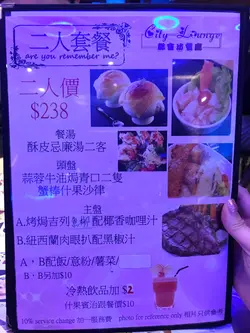 二人套餐
are you remember me?
City Lounge
二人價
$238
餐湯
酥皮忌廉湯二客
頭盤
蒜蓉牛油焗青口二隻
蟹棒什果沙律
主盤
A.烤焗吉列 配椰香咖哩汁
B.紐西蘭肉眼扒配黑椒汁
A，B配飯/意粉/薯菜/
B，B另加$10
冷熱飲品加 $2
什果賓治跟餐加$10
10% service charge 加一服務費 photo for reference only 相片只供參考